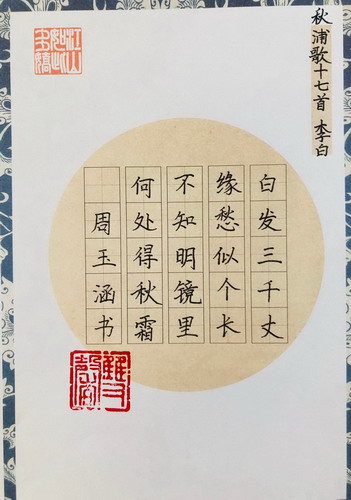 秋浦歌十七首 李白
白发三千丈
缘愁似个长
不知明镜里
何处得秋霜
周玉涵书
江山如此多娇